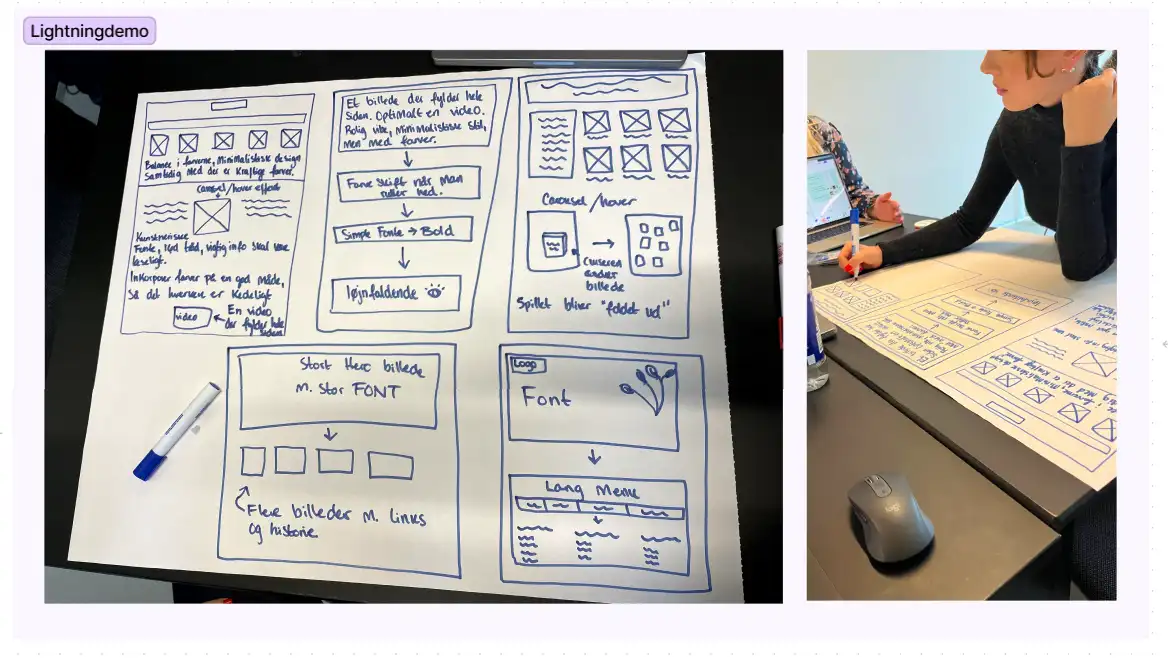 Lightningdemo
Balance i farverne, Minimalistisk design
Samtidig med der er kraftige farver.
carousel/hover effekt
Kunstneriske
Fonte, ved fed, vigtig info skal være
læseligt.
Inkorporer farver på en god måde,
så det hverken er kedeligt
video
En video
der fylder hele
siden
Et billede der fylder hele
Siden. Optimalt en video.
Rolig vibe, Minimalistisk Stil,
Men med farver.
Farve skift når man
ruller ned.
Simple Fonte → Bold
Iøjnfaldende
Carousel/hover
curseren
ændrer
billede
Spillet bliver "foldet ud"
Stort Hero billede
m. stor FONT
Flere billeder m. links
og historie
Logo
Font
Lang Menu